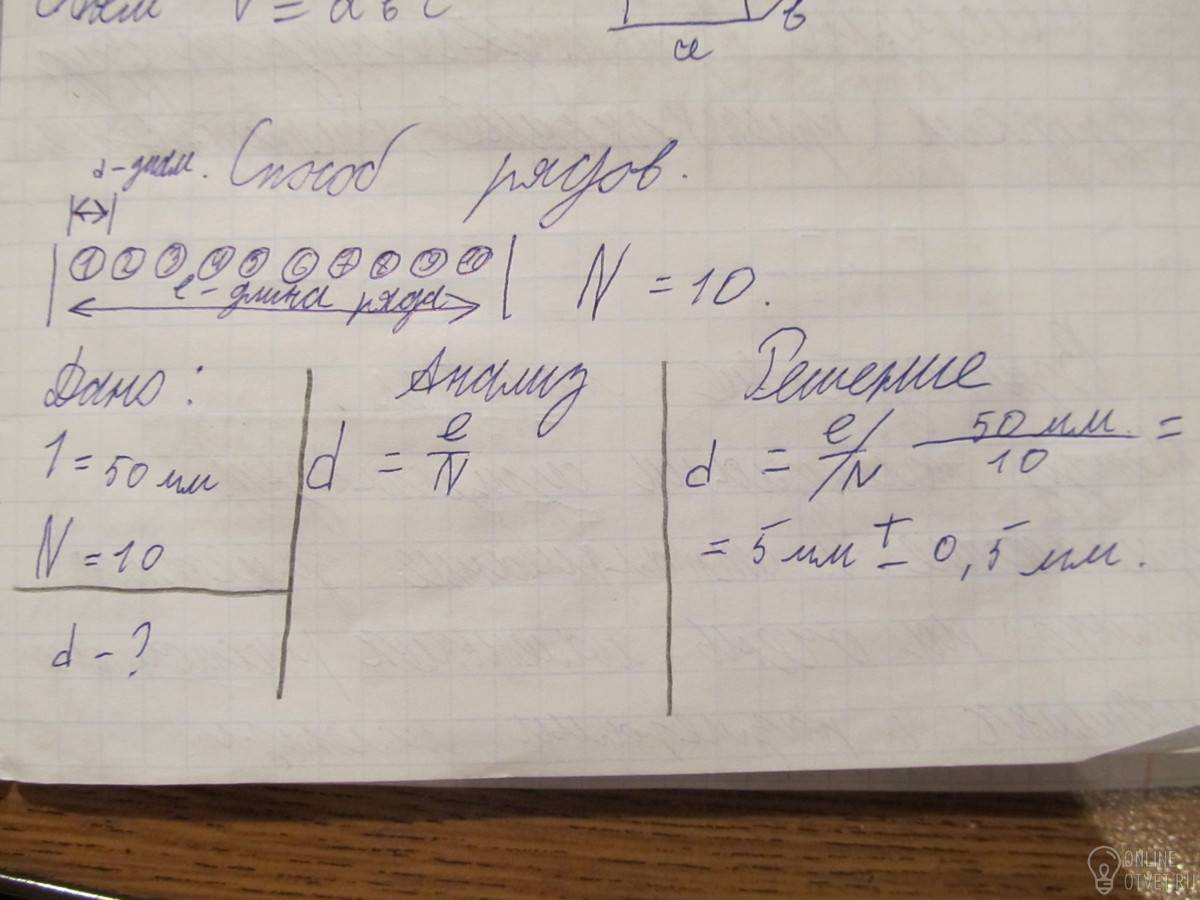 V = a b c
a
b
d - диам. Способ рядов.
1 2 3 4 5 6 7 8 9 10
l - длина ряда
N = 10.
Дано:
l = 50 мм
N = 10
d - ?
Анализ
d = l/N
Решение
d = l/N 50 мм. / 10 =
= 5 мм ± 0,5 мм.
ONLINE
OTVET.RU